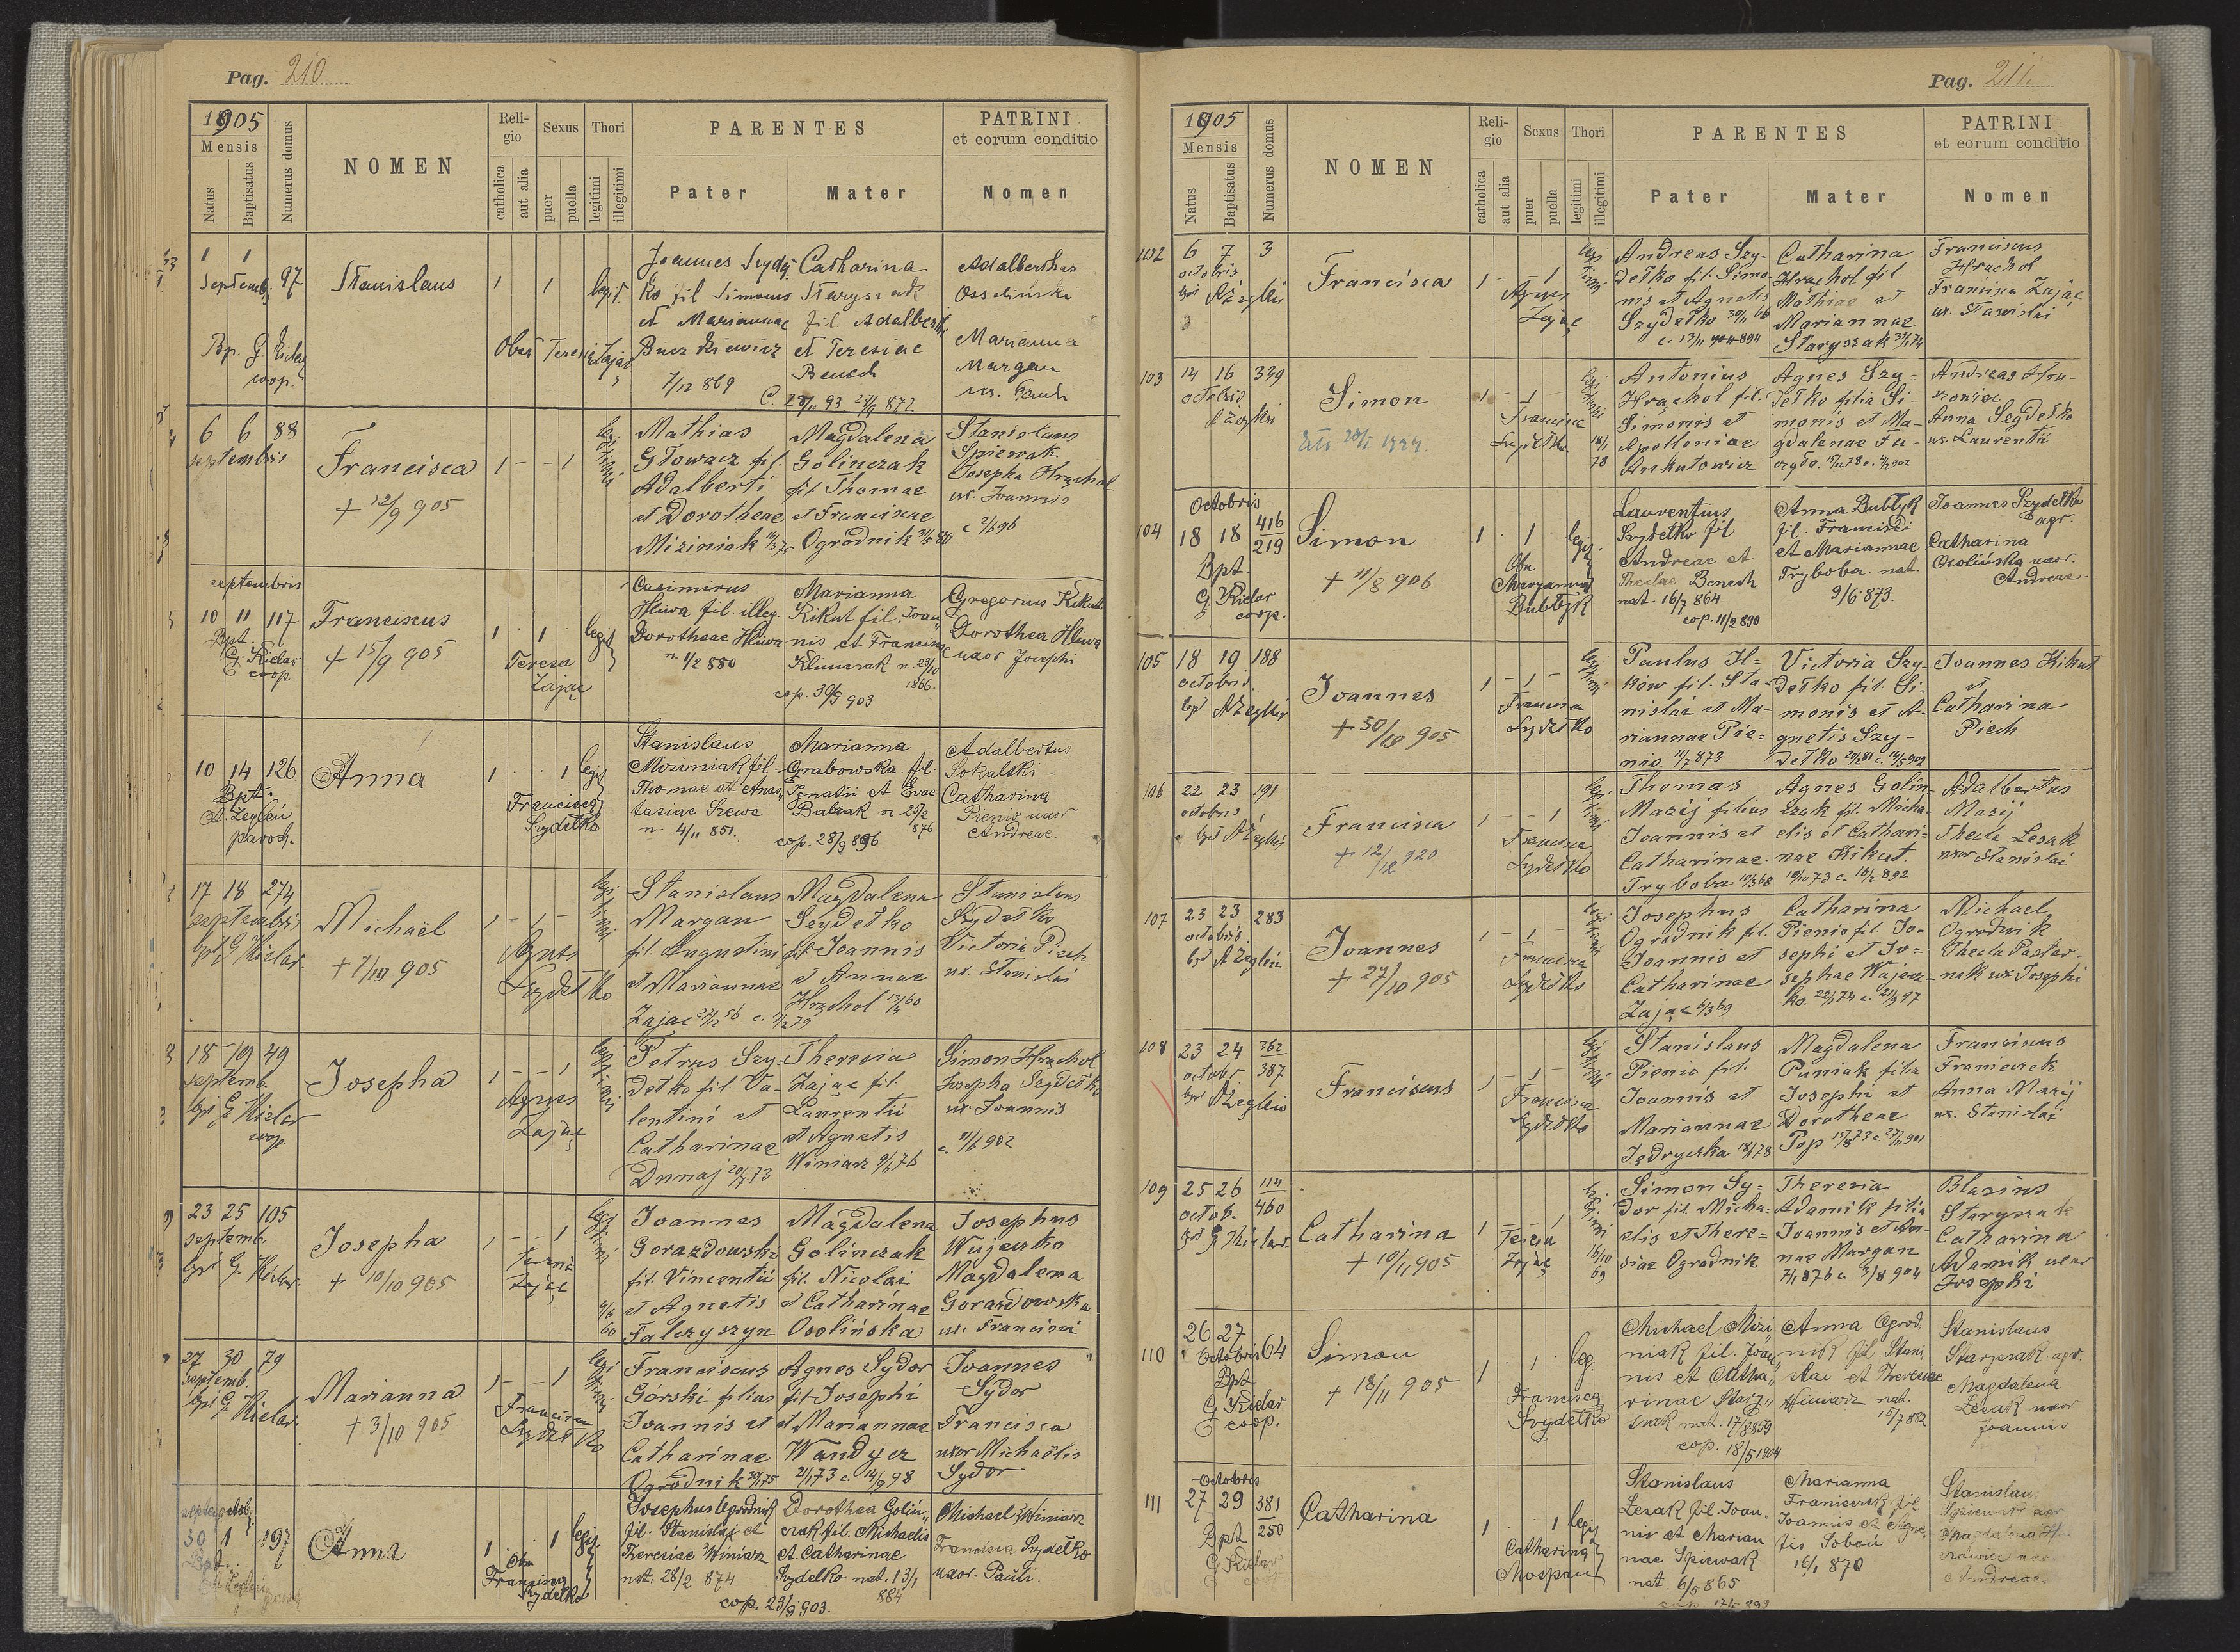 Pag. 210
1905
Mensis
Natus
Baptisatus
Numerus domus
NOMEN
Religio
catholica
aut alia
Sexus
puer
puella
Thori
legitimi
illegitimi
PARENTES
Pater
Mater
PATRINI
et eorum conditio
Nomen
1 1
Septemb. 97
Stanislaus
1 1 legit.
Bp. G Kielar
coop.
Obst Teresia Zając
Joannes Szydeł
ko fil Simonis
et Mariannae
Buczkiewicz
7/12 869
Catharina
Staryszak
fil. Adalberti
et Teresiae
Benech
C. 28/11 93 872
Adalberthus
Ossoliński
Marianna
Margan
ux. Pauli
6 6 88
septembris
Francisca
+ 12/9 905
1 - - 1
legitimi
Mathias
Głowacz fil.
Adalberti
et Dorotheae
Miziniak
Magdalena
Golinczak
fil. Thomae
et Franciscae
Ogrodnik
Stanislaus
Śpiewak
Josepha Hrzchol
ux. Joannis
septembris
10 11 117
Bpt.
G. Kielar
coop
Franciscus
+ 15/9 905
1 1 legit
Teresa
Zając
Casimirus
Hliwa fil. illeg.
Dorotheae Hliwa
n. 1/2 880
Marianna
Kikut fil. Joan
nis et Franciscae
Klimczak n. 23/10
1866.
cop. 30/9 903
Gregorius Kikut
Dorothea Hliwa
uxor Josephi
10 14 126
Bpt.
A. Żegleń
paroch.
Anna
1 1 legit
Francisca
Szydełko
Stanislaus
Miziniak fil.
Thomae et Anas
tasiae Szewc
n. 4/11 851.
Marianna
Grabowska fil.
Ignatii et Evae
Babiak n. 25/2
876
cop. 28/9 896
Adalbertus
Sokalski
Catharina
Pienio uxor
Andreae.
17 18 274
septembris
bpt G Kielar
Michaël
+ 7/10 905
1 - 1 -
legitimi
Agnes
Szydełko
Stanislaus
Margan
fil. Augustini
et Mariannae
Zając
Magdalena
Szydełko
fil Joannis
et Annae
Hrzchol
Stanislaus
Szydełko
Victoria Piech
ux. Stanislai
18 19 49
septemb.
bpt G Kielar
coop.
Josepha
1 - - 1
legitimi
Agnes
Zając
Petrus Szy-
dełko fil. Va-
lentini et
Catharinae
Dunaj 20/7 73
Theresia
Zając fil.
Laurentii
et Agnetis
Winiarz 9/6 76
Simon Hrzchol
Josepha Szydełko
ux. Joannis
c. 11/6 902
23 25 105
septemb.
bpt G. Kielar
Josepha
+ 10/10 905
1 - - 1
legitimi
Zając
Joannes
Gorazdowski
fil. Vincentii
et Agnetis
Falczyszyn
Magdalena
Golinczak
fil. Nicolai
et Catharinae
Osolińska
Josephus
Wujeczko
Magdalena
Gorazdowska
ux. Francisci
27 30 79
septemb.
bpt G Kielar
Marianna
+ 3/10 905
1 - - 1
legitimi
Francisca
Szydełko
Franciscus
Górski filius
Joannis et
Catharinae
Ogrodnik
Agnes Sydor
fil Josephi
et Mariannae
Wandycz
21/1 73 c. 14/9 98
Joannes
Sydor
Francisca
uxor Michaëlis
Sydor
septem octob.
30 1 197
Bpt.
A Żegleń
Anna
1 1 legit
Obs
Francisca
Szydełko
Josephus Ogrodnik
fil. Stanislai et
Theresiae Winiarz
nat. 28/2 874
Dorothea Goliń
czak fil. Michaelis
et Catharinae
Szydelko nat. 13/1
884
cop. 23/9 903.
Michael Winiarz
Francisca Szydełko
uxor. Pauli.
Pag. 211
1905
Mensis
Natus
Baptisatus
Numerus domus
NOMEN
Religio
catholica
aut alia
Sexus
puer
puella
Thori
legitimi
illegitimi
PARENTES
Pater
Mater
PATRINI
et eorum conditio
Nomen
102 6 7 3
octobris
bpt A Żegleń
Francisca
1 - - 1
legitimi
Agnes
Zając
Andreas Szy-
dełko fil. Simo-
nis et Agnetis
Szydełko
Catharina
Hrzchol fil.
Mathiae et
Mariannae
Staryszak
Franciscus
Hrachol
Francisca Zając
ux. Stanislai
103 14 16 339
octobris
Simon
1 - 1 -
legitimi
Francisca
Szydełko
Antonius
Hrachol fil.
Simonis et
Apolloniae
Ankutowicz
Agnes Szy-
dełko filia Si-
monis et Ma-
gdalenae
Andreas
Anna Szydełko
ux. Laurentii
Octobris
104 18 18 416
219
Bpt.
G. Kielar
coop.
Simon
+ 11/8 906
1 1 legit
Obs
Maryanna
Bubłyk
Laurentius
Szydełko fil
Andreae et
Theclae Benech
nat. 16/7 864
cop. 11/2 890
Anna Bubłyk
fil. Francisci
et Mariannae
Tryboba. nat.
9/6 873.
Joannes Szydełko
agr.
Catharina
Osolińska uxor.
Andreae
105 18 19 188
octobris.
bpt A Żegleń
Joannes
+ 30/10 905
1 - 1 -
legitimi
Francisca
Szydełko
Paulus Il-
ków fil. Sta-
nislai et Ma-
riannae Pie-
nio. 11/7 873
Victoria Szy-
dełko fil. Si-
monis et A-
gnetis Szy-
dełko
Joannes Kikut
et
Catharina
Piech
106 22 23 191
octobris
bpt A Żegleń
Francisca
+ 12/12 920
1 - - 1
legitimi
Francisca
Szydełko
Thomas
Mazij filius
Joannis et
Catharinae
Tryboba
Agnes Golin-
czak fil. Micha-
elis et Cathari-
nae Kikut.
Adalbertus
Mazij
Thecla Lesak
uxor Stanislai
107 23 23 283
octobris
bpt A Żegleń
Joannes
+ 27/10 905
1 - 1 -
legitimi
Francisca
Szydełko
Josephus
Ogrodnik fil.
Joannis et
Catharinae
Zając 6/3 69
Catharina
Pienio fil. Jo-
sephi et Jo-
sephae Wujecz-
ko.
Michael
Ogrodnik
Thecla Paster-
nak ux. Josephi
108 23 24 362
387
octobr
bpt A Żegleń
Franciscus
1 - 1 -
legitimi
Francisca
Szydełko
Stanislaus
Pienio fil.
Joannis et
Mariannae
Jędryczka
Magdalena
Puniak filia
Josephi et
Dorotheae
Pop
Franciscus
Franieczek
Anna Mazij
ux. Stanislai
109 25 26 114
460
octob.
bpt G Kielar
Catharina
+ 10/11 905
1 - - 1
legitimi
Teresia
Zając
16/10
69
Simon Sy-
dor fil. Micha-
elis et There-
siae Ogrodnik
Theresia
Adamik filia
Joannis et An-
nae Margan
Blasius
Staryszak
Catharina
Adamik uxor
Josephi
110 26 27 64
Octobris
Bpt
G Kielar
coop.
Simon
+ 18/11 905
1 1 leg.
Francisca
Szydełko
Michael Mizi
niak fil. Joan
nis et Catha
rinae Stary
szak nat. 17/8 859
cop. 18/5 1904
Anna Ogrod
nik fil. Stani
slai et Theresiae
Winiarz nat.
15/7 882
Stanislaus
Staryszak agr.
Magdalena
Lesak uxor
Joannis
Octobris
111 27 29 381
250
Bpt
G Kielar
Catharina
1 1 legit
Catharina
Mospan
Stanislaus
Lesak fil. Joan.
nis et Marian
nae Śpiewak
nat. 6/5 865
Marianna
Franieczek fil
Joannis et Agne
tis Soboń
16/1 870
Stanislaus
Śpiewak agr
Magdalena
Andreae